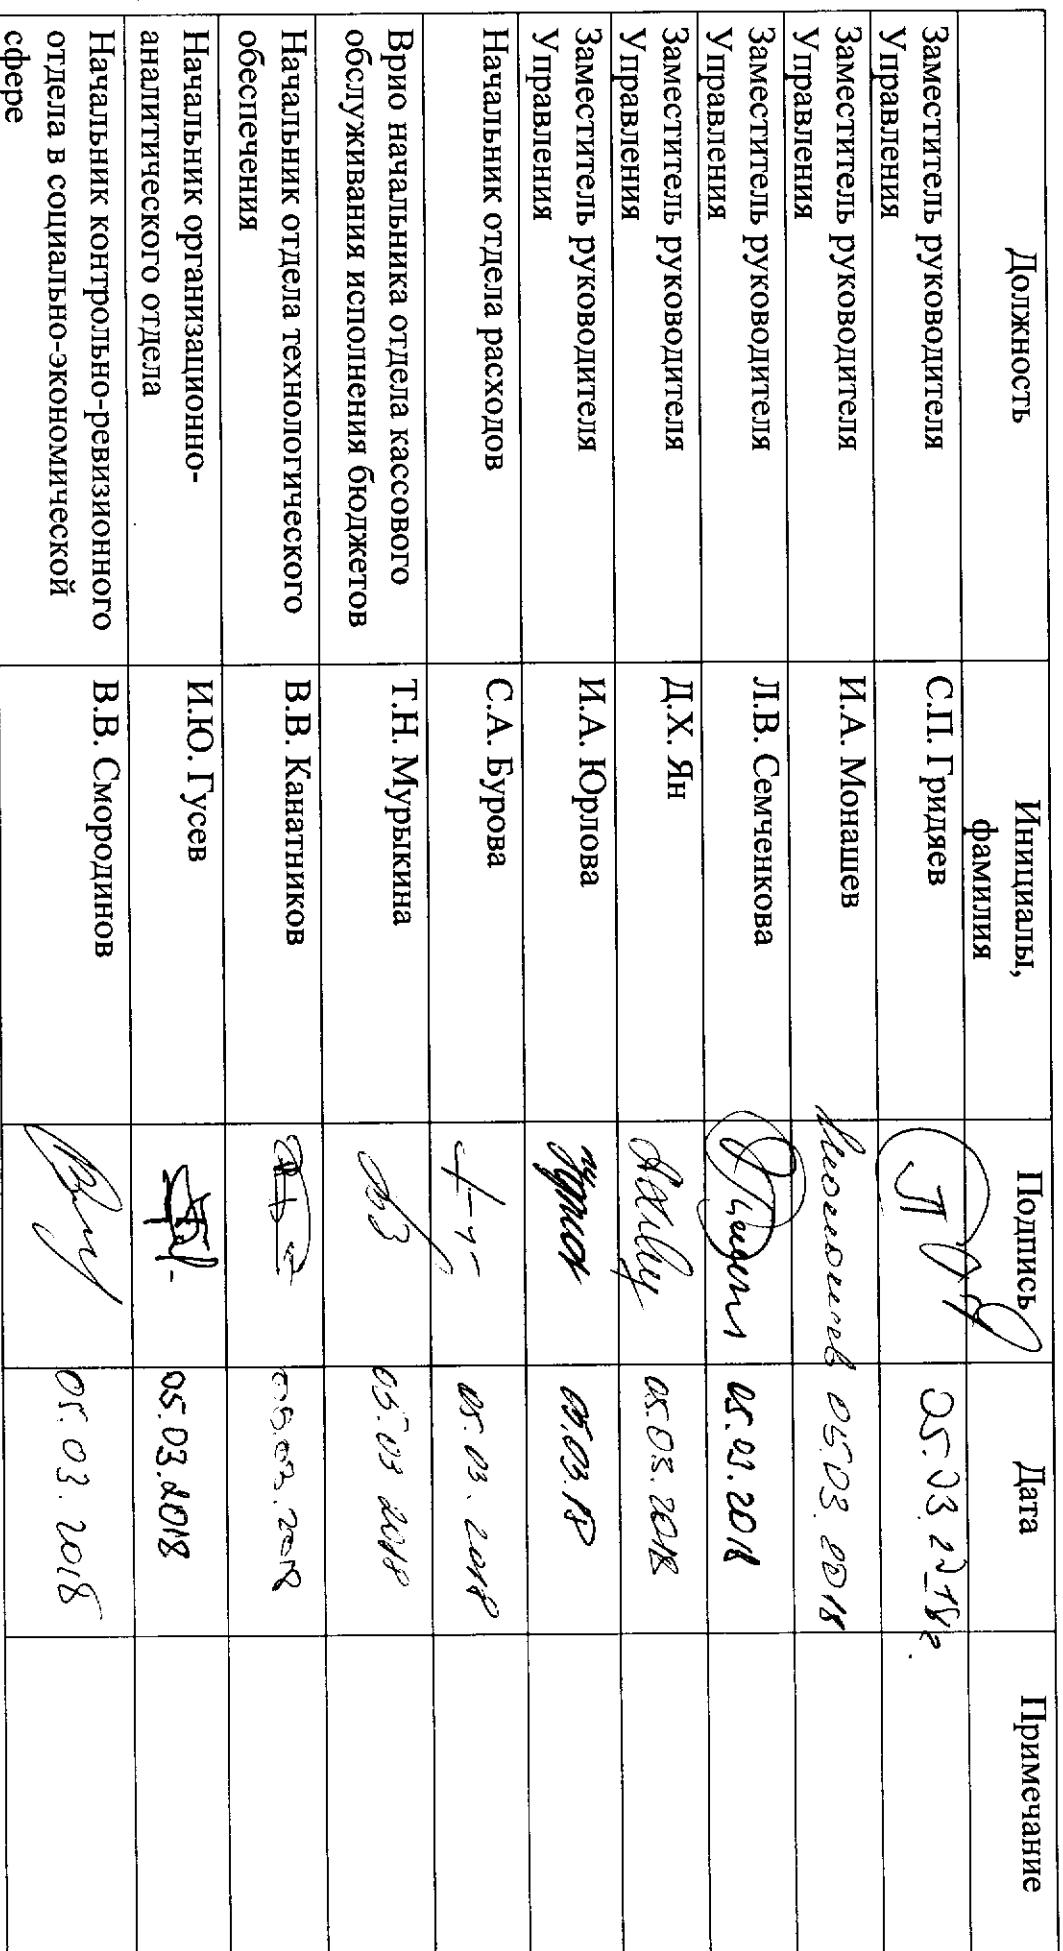 Должность Инициалы, фамилия Подпись Дата Примечание
Заместитель руководителя
Управления
С.П. Гридяев
05.03.2018г.
Заместитель руководителя
Управления
И.А. Монашев
05.03.2018
Заместитель руководителя
Управления
Л.В. Семченкова
05.03.2018
Заместитель руководителя
Управления
Д.Х. Ян
05.03.2018
Заместитель руководителя
Управления
И.А. Юрлова
05.03.18
Начальник отдела расходов
С.А. Бурова
05.03.2018
Врио начальника отдела кассового
обслуживания исполнения бюджетов
Т.Н. Мурыкина
05.03 2018
Начальник отдела технологического
обеспечения
В.В. Канатников
05.03.2018
Начальник организационно-
аналитического отдела
И.Ю. Гусев
05.03.2018
Начальник контрольно-ревизионного
отдела в социально-экономической
сфере
В.В. Смородинов
05.03.2018